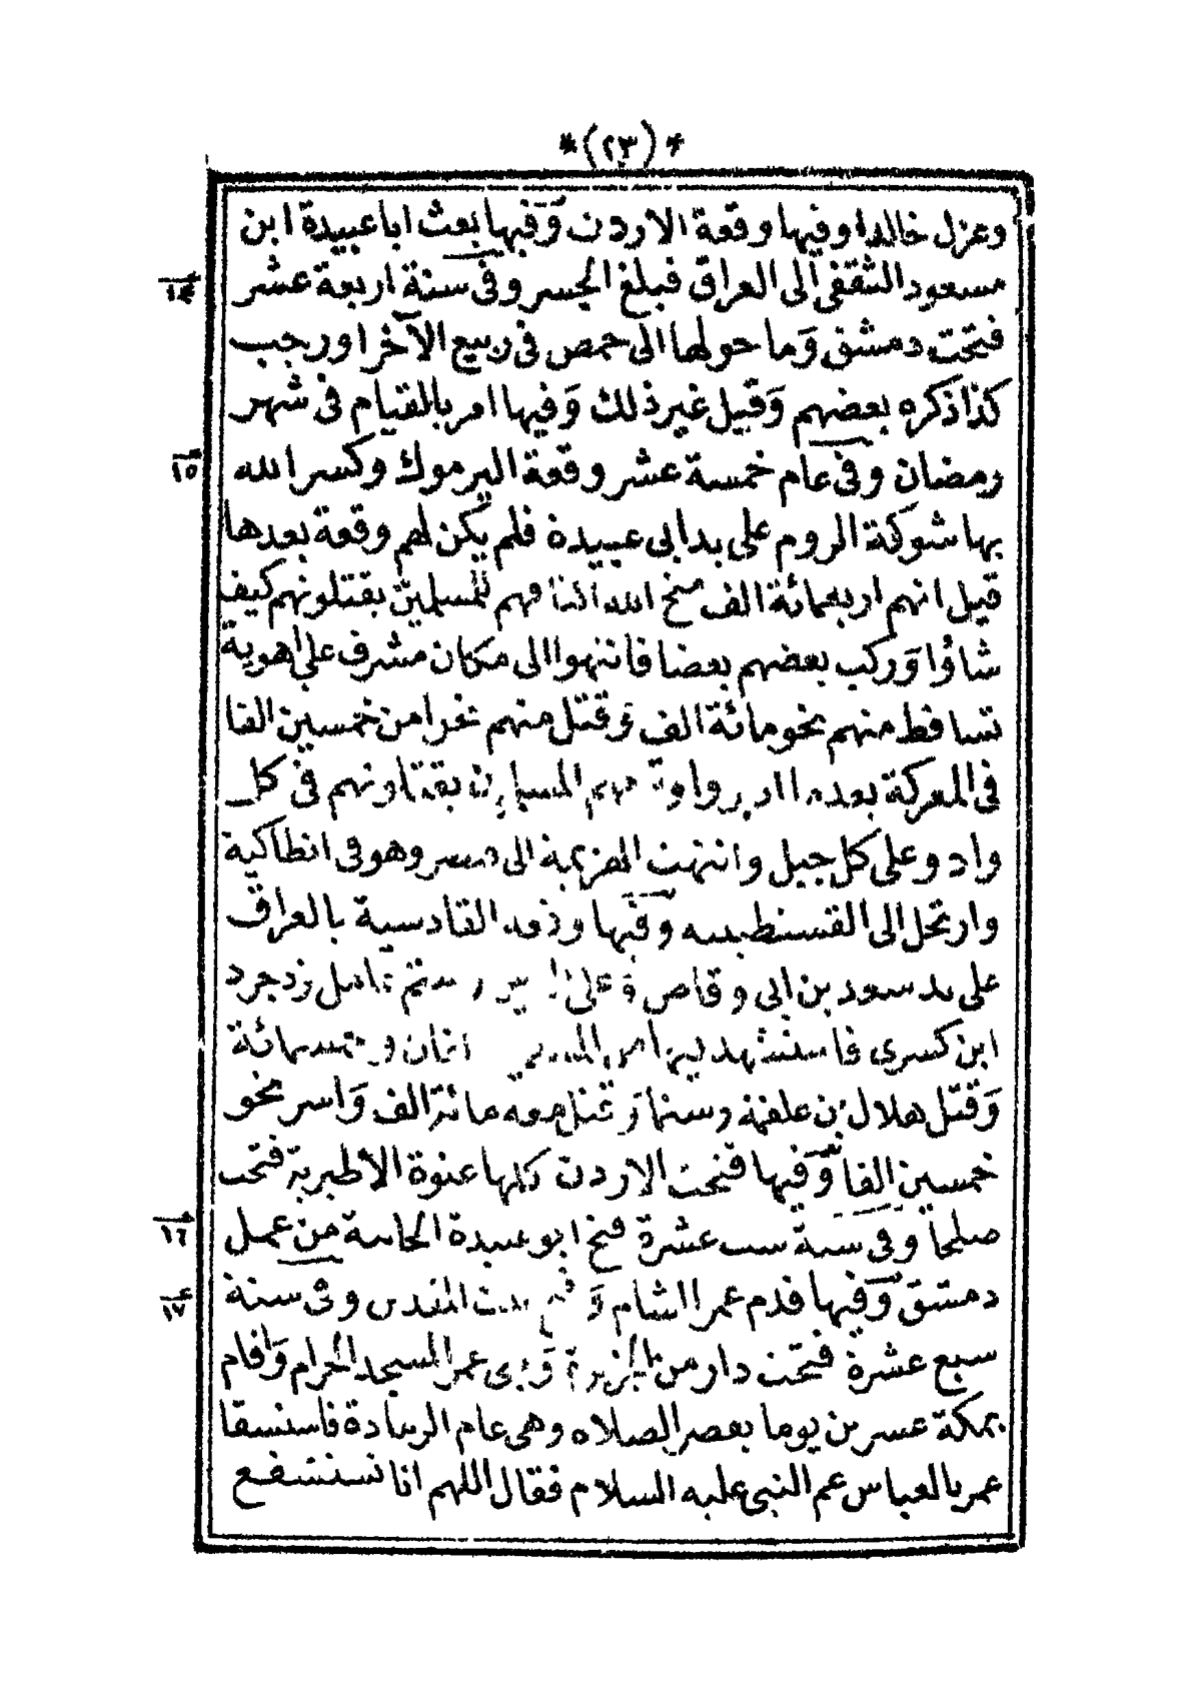 *(٢٣)*
وعزل خالدا وفيها وقعة الاردن وَفيها بعث ابا عبيدة ابن
مسعود الثقفى الى العراق فبلغ الجسر وفى سنة اربعة عشر
١٤
فتحت دمشق وَما حولها الى حمص فى ربيع الآخر او رجب
كذا ذكره بعضهم وَقيل غير ذلك وَفيها امر بالقيام فى شهر
رمضان وفى عام خمسة عشر وقعة اليرموك وكسر الله
١٥
بها شوكة الروم على يد ابى عبيدة فلم يكن لهم وقعة بعدها
قيل انهم اربعمائة الف منح الله اكتافهم للمسلمين يقتلونهم كيف
شاؤا وَركب بعضهم بعضا فانتهوا الى مكان مشرف على اهوية
تساقط منهم نحو مائة الف وَقتل منهم نفرا من خمسين الفا
فى المعركة بعد المسلمين يقتلونهم فى كل
واد وعلى كل جبل وانتهت الهزيمة الى وهو فى انطاكية
وارتحل الى وَفيها وقعة القادسية بالعراق
على يد سعد بن ابى وقاص يزدجرد
ابن كسرى فاستشهد فيها من وخمسمائة
وَقتل هلال بن علقمة رستما وَقتل معه مائة الف وَاسر نحو
خمسين الفا وَفيها فتحت الاردن كلها عنوة الا طبرية فتحت
صلحا وفى سنة ست عشرة فتح ابو عبيدة من عمل
١٦
دمشق وَفيها قدم عمر الشام بيت المقدس وفى سنة
١٧
سبع عشرة فتحت ديار من الجزيرة وَبنى عمر المسجد الحرام وَاقام
بمكة عشرين يوما بقصر الصلاه وهى عام الرمادة فاستسقا
عمر بالعباس عم النبى عليه السلام فقال اللهم انا نستشفع